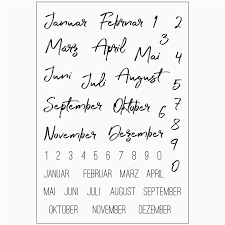 Januar Februar 1 2
März April 3
Mai 4
Juni Juli August 5
6
September Oktober 7
8
November Dezember 9
1 2 3 4 5 6 7 8 9 0
0
JANUAR FEBRUAR MÄRZ APRIL
MAI JUNI JULI AUGUST SEPTEMBER
OKTOBER NOVEMBER DEZEMBER